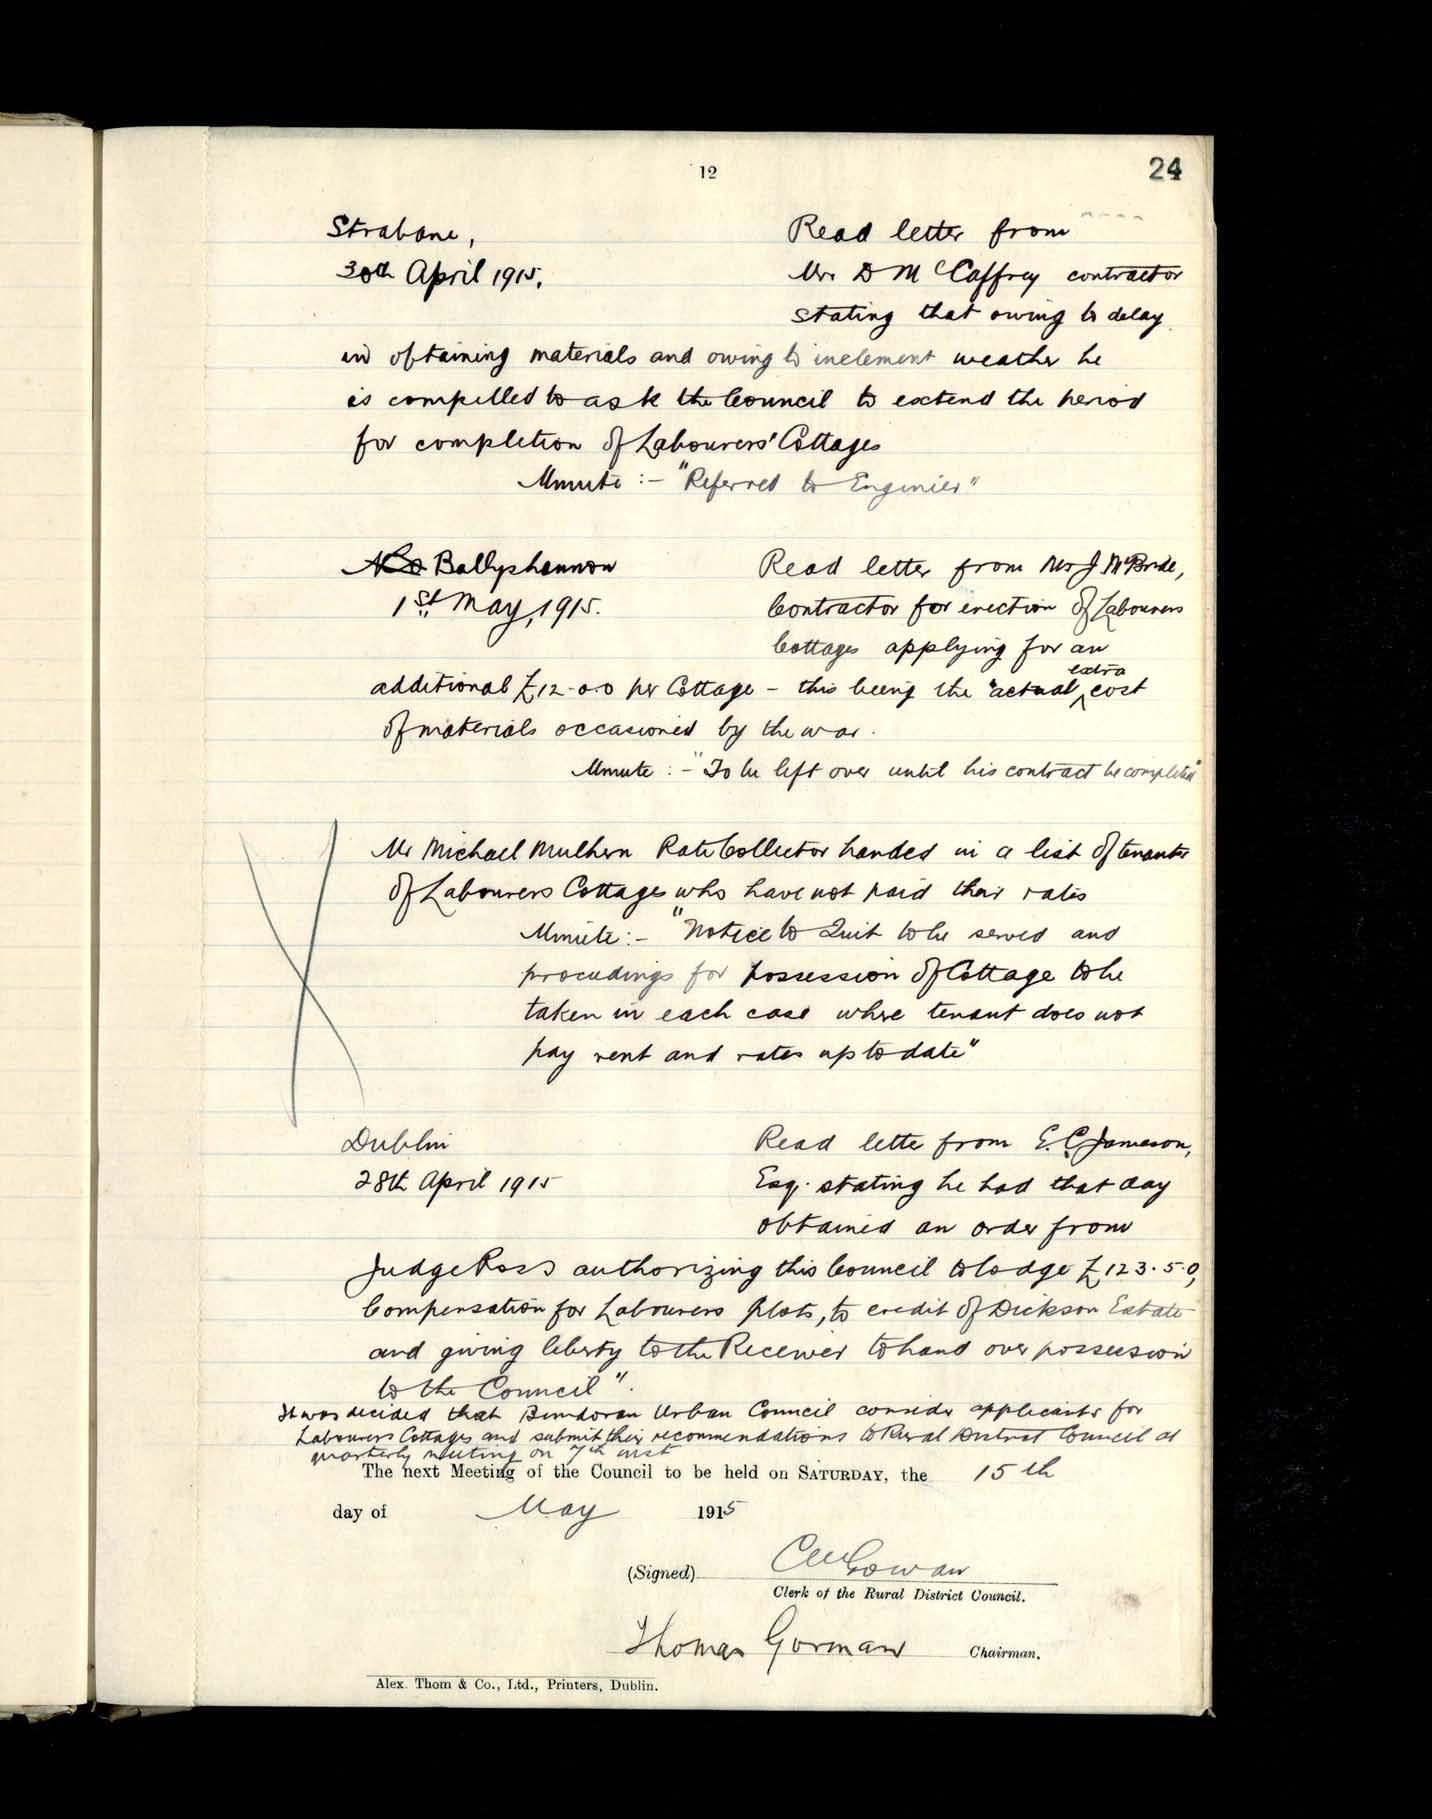 12
24
Strabane,
30th April 1915.
Read letter from
Mr. D McCaffrey contractor
stating that owing to delay
in obtaining materials and owing to inclement weather he
is compelled to ask the Council to extend the period
for completion of Labourers' Cottages
Minute :- "Referred to Engineer"
Ballyshannon
1st May, 1915.
Read letter from Mr J McBride,
Contractor for erection of Labourers
Cottages applying for an
additional £12-0.0 per Cottage - this being the "actual extra cost
of materials occasioned by the war.
Minute :- "To be left over until his contract be completed"
Mr Michael Mulhern Rate Collector handed in a list of tenants
of Labourers Cottages who have not paid their rates
Minute:- "Notice to Quit to be served and
proceedings for possession of Cottage to be
taken in each case where tenant does not
pay rent and rates up to date"
Dublin
28th April 1915
Read letter from E. C. Jameson,
Esq. stating he had that day
obtained an order from
Judge Ross authorizing this Council to lodge £123.5.0,
Compensation for Labourers Plots, to credit of Dickson Estate
and giving liberty to the Receiver to hand over possession
to the Council".
It was decided that Bundoran Urban Council consider applicants for
Labourers Cottages and submit their recommendations to Rural District Council at
quarterly meeting on 7th inst
The next Meeting of the Council to be held on SATURDAY, the 15th
day of May 1915
(Signed) C McGowan
Clerk of the Rural District Council.
Thomas Gorman Chairman.
Alex. Thom & Co., Ltd., Printers, Dublin.